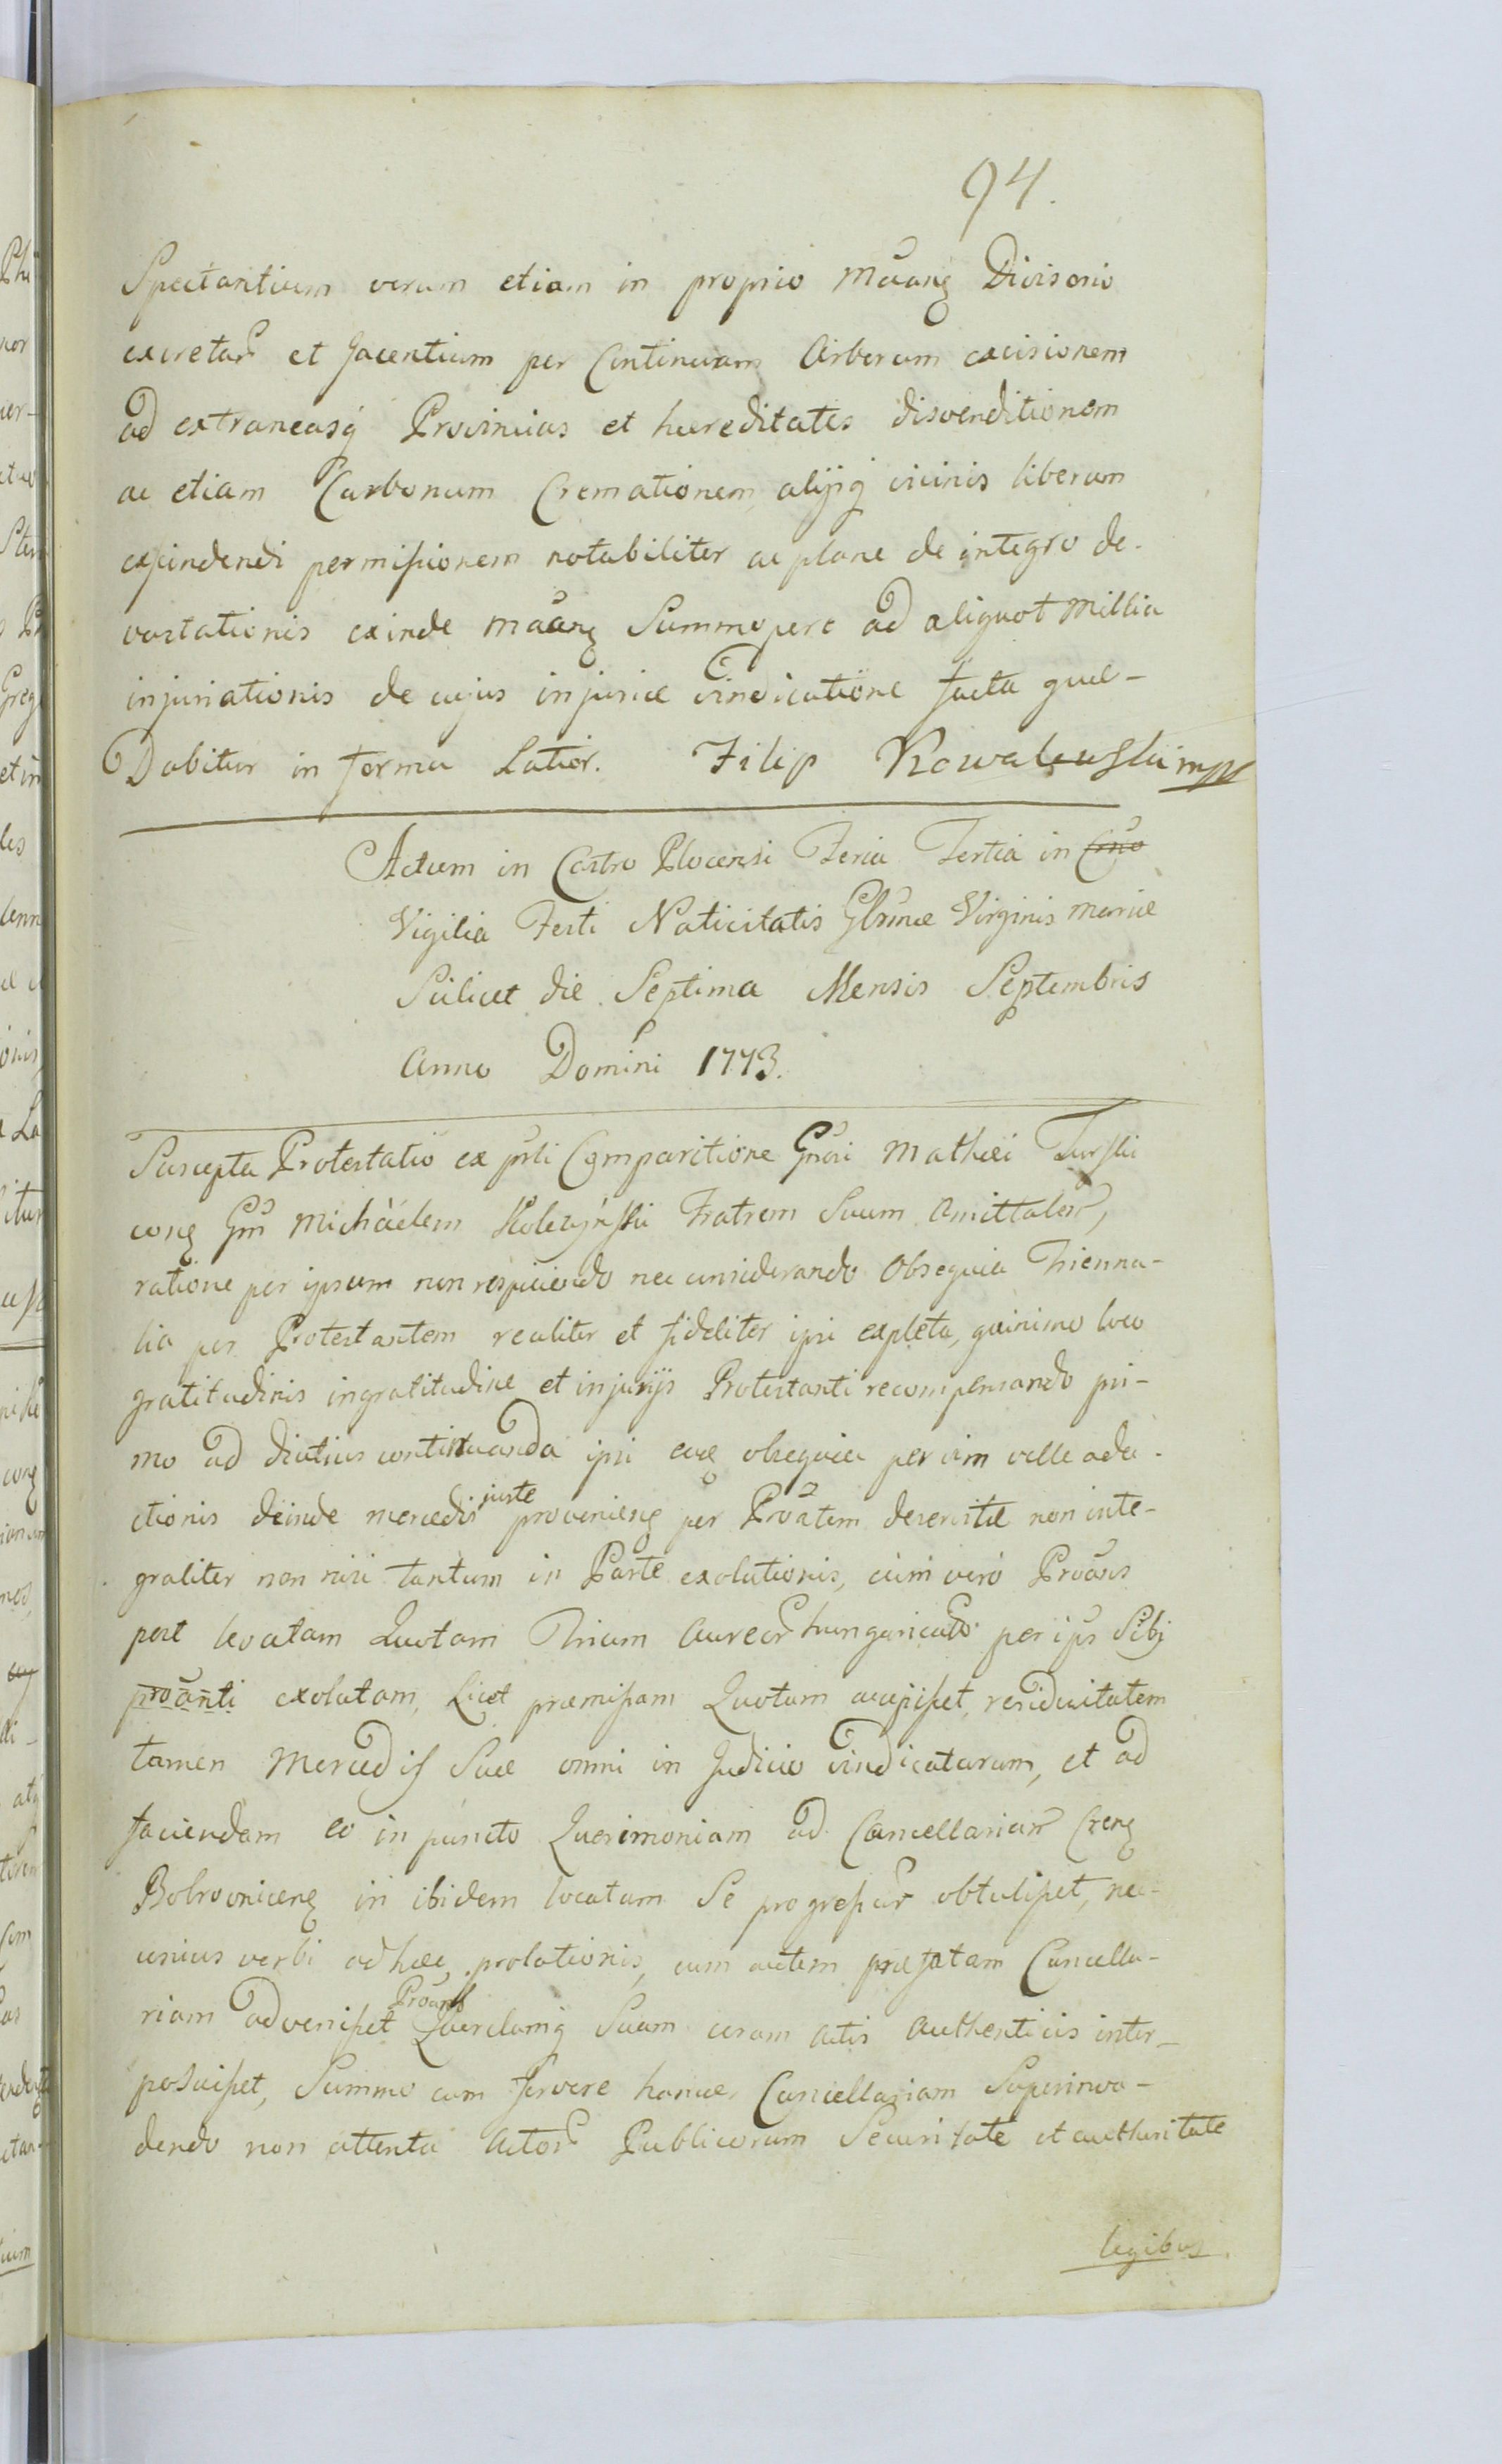 94.
Spectantium verum etiam in proprio Maang Divisorio
excretar et Jacentium per Continuam Arborum excisionem
ad extraneasq Provincias et hæreditates disvenditionem
ac etiam Carbonum Cremationem alijsq vicinis liberam
exscindendi permissionem notabiliter ac plane de integro de-
vastationis exinde maang Summopere ad aliquot Millia
injuriationis de cujus injuriæ vindicatione facta quæ-
Dabitur in forma Latior. Filip Kowalewski mp
Actum in Castro Plocensi Feria Tertia in Crno
Vigilia Festi Nativitatis Glrmæ Virginis Mariæ
Scilicet die Septima Mensis Septembris
Anno Domini 1773.
Suscepta Protestatio ex prsti Comparitione Gnosi Mathæi Turski
cong Gm Michäelem Kolczÿnski Fratrem Suum Amittaler,
ratione per ipsum non respiciendo nec considerando Obsequia Trienna-
lia per Protestantem realiter et fideliter ipsi expleta, quinimo loco
gratitudinis ingratitudine et injurijs Protestanti recompensando pri-
mo ad diutius continuanda ipsi obsequia per vim velle adu-
ctionis deinde mercedis juste provenieng per Proatem deservitæ non inte-
graliter non nisi tantum in Parte exolutionis, cùm verò Proans
post levatam Quotam Trium Aureor hungaricalo per ips Sibj
proanti exolutam, Licet præmissam Quotam accepisset, residuitatem
tamen Mercedis Suæ omni in Judicio vindicaturum, et ad
faciendam eo in puncto Querimoniam ad Cancellariam Creng
Bobrovniceng in ibidem locatam Se progressur obtulisset, nec
unius verbi ad hæc prolationis, cum autem præfatam Cancella-
riam advenisset Proans Querelamq Suam coram Actis Authenticis inter-
posuisset, Summo cum fervore hancce Cancellariam Superinva-
dendo non attenta Actor Publicorum Securitate et authoritate
legibus